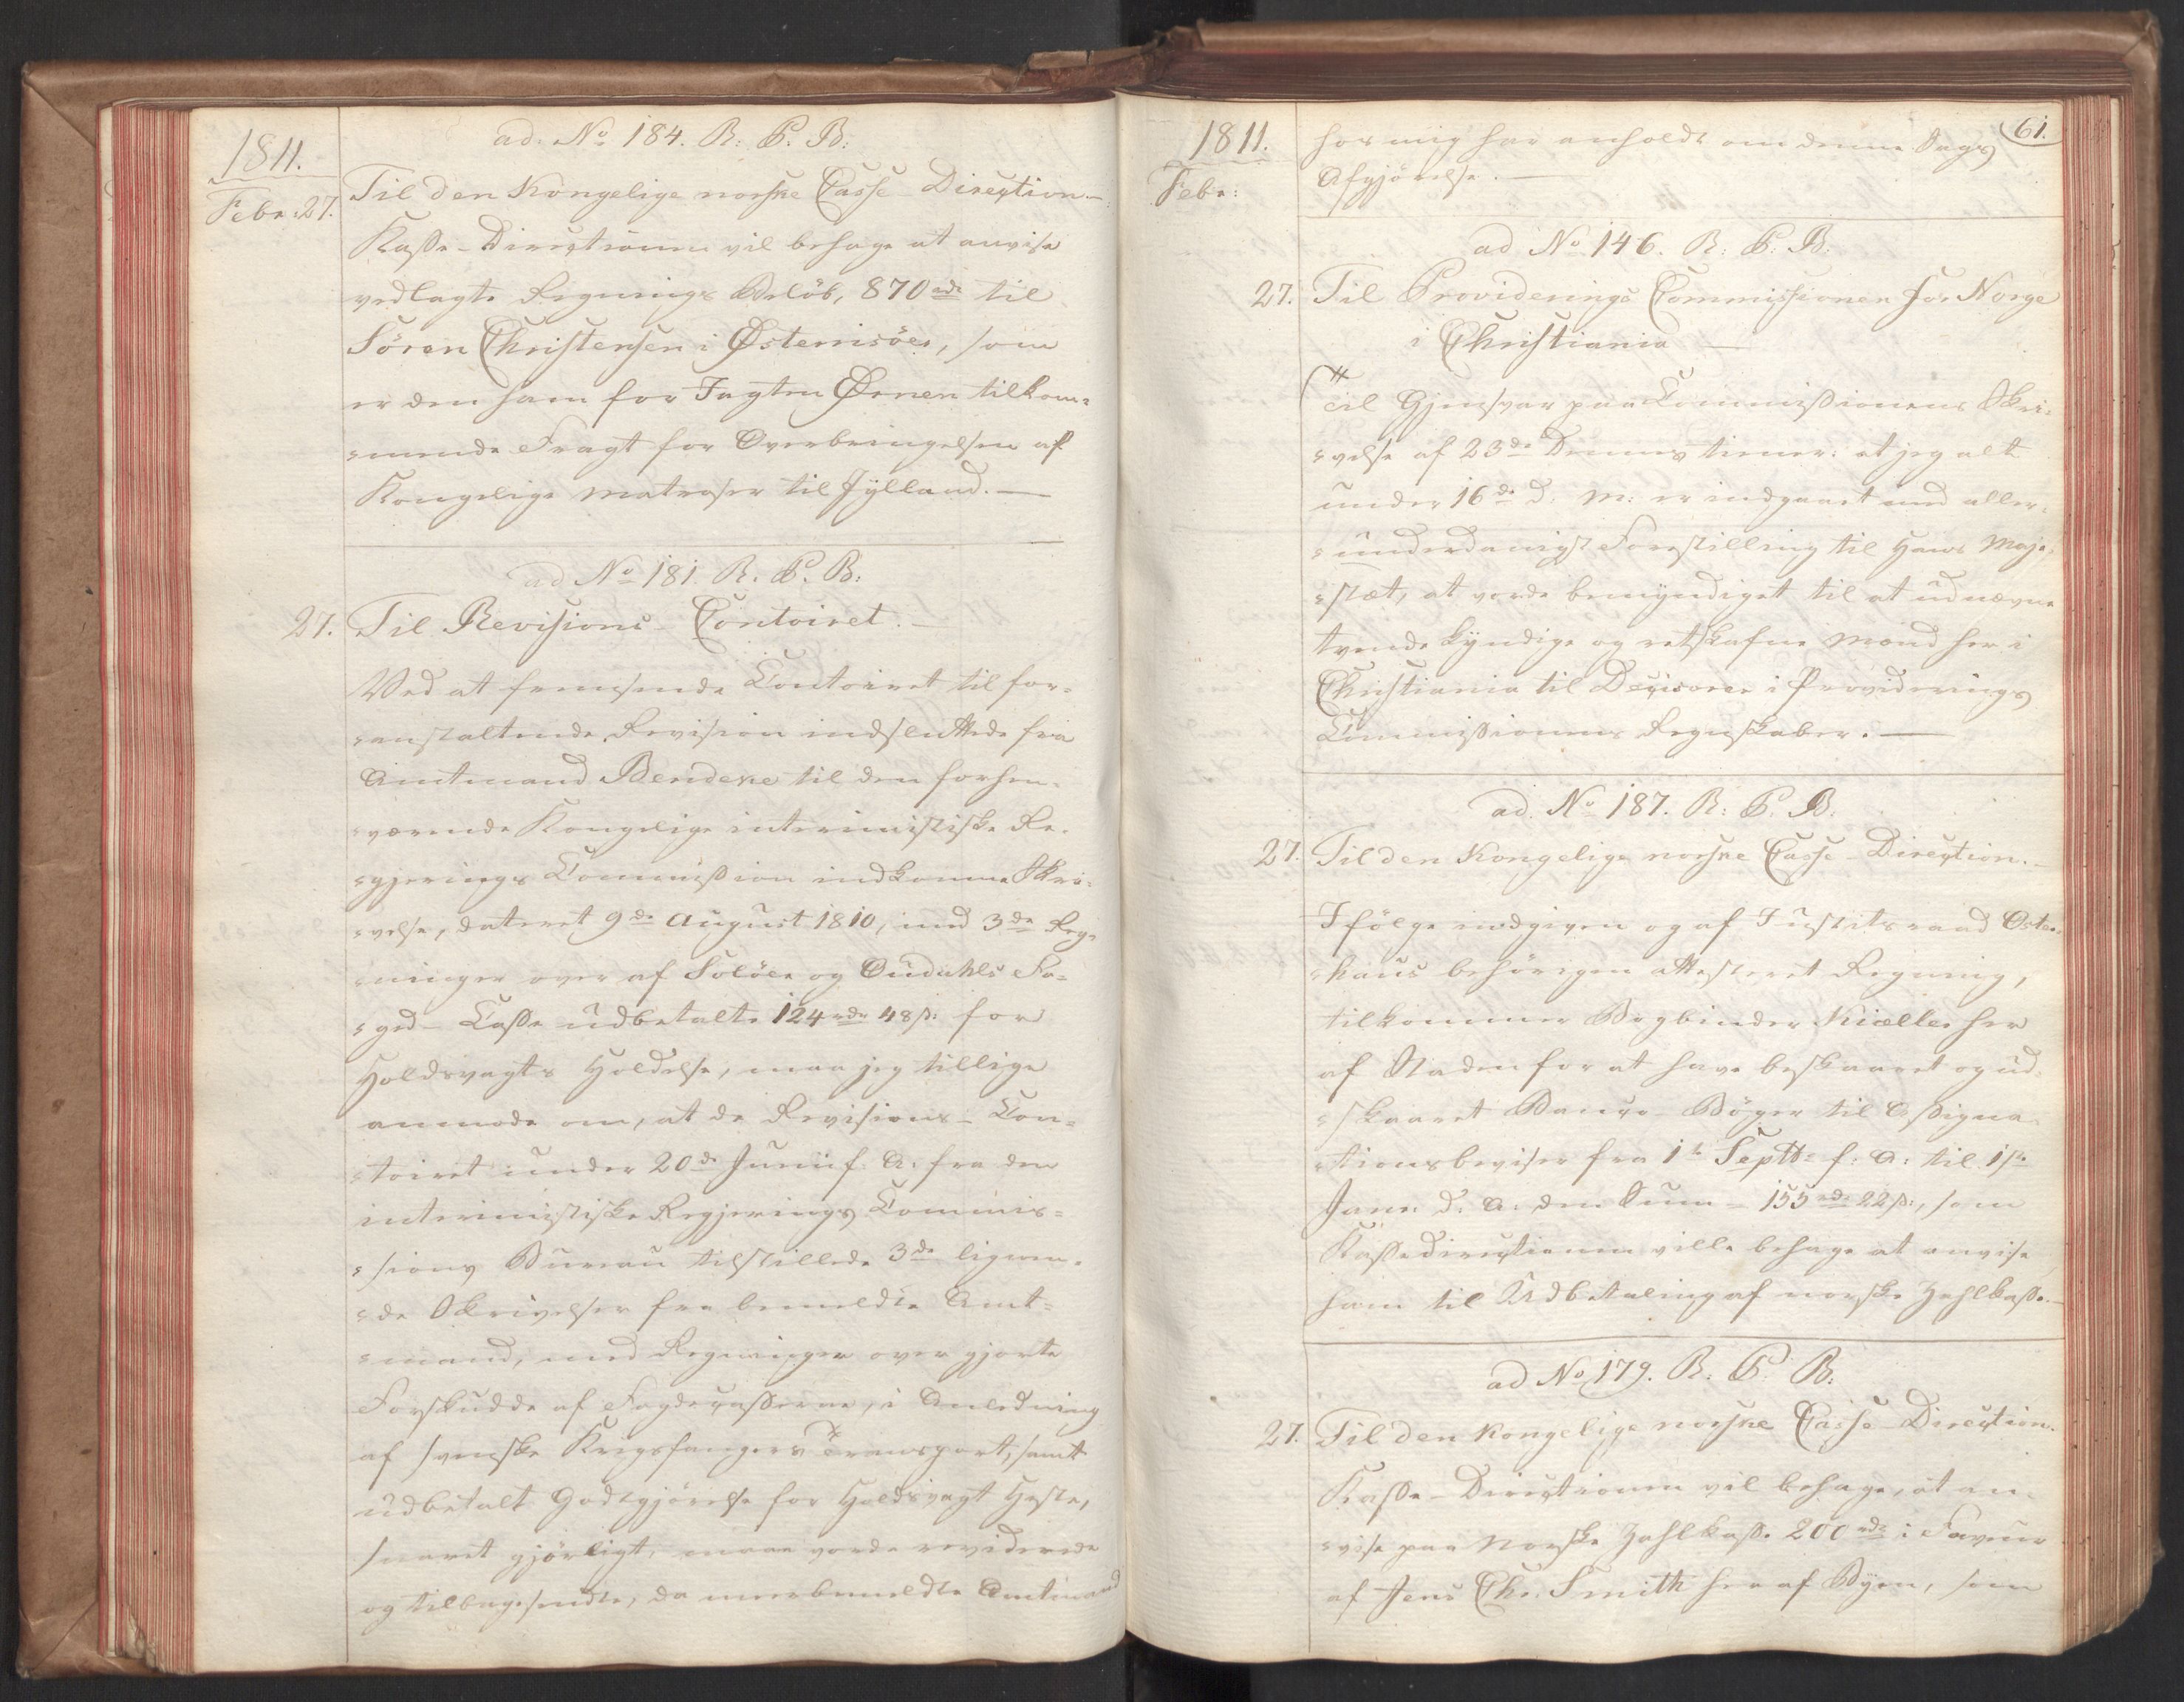 1811.
ad. No 184. R: P. B:
Febr: 27. Til den Kongelige norske Casse-Direction.-
Kasse-Directionen vil behage at anvise
vedlagte Regnings Belöb, 870 rdr til
Sören Christensen i Österrisöer, som
er den ham for Jagten Örnen tilkom-
mende Fragt for Overbringelsen af
Kongelige Matroser til Jylland.-
ad No 181. R. P. B:
27. Til Revisions-Contoiret.-
Ved at fremsende Contoiret til for-
anstaltende Revision indsluttede fra
Amtmand Bendeke til den forhen-
værende Kongelige interimistiske Re-
gjerings Commission indkomne Skri-
velse, dateret 9de August 1810, med 3de Reg-
ninger over af Solöer og Oudahls Fo-
ged-Casse udbetalte 124 rdr 48 s: for
Holdsvagts Holdelse, maa jeg tillige
anmode om, at de Revisions-Con-
toiret under 20de Junii f: A: fra den
interimistiske Regjerings Commis-
sions Bureau tilstillede 3de lignen-
de Skrivelser fra bemeldte Amt-
mand, med Regninger over gjorte
Forskudde af Fogdecasserne, i Anledning
af svenske Krigsfangers Transport, samt
udbetalt Godtgjörelse for Holdsvagt Heste,
snarest gjörligt, maae vorde reviderede
og tilbagesendte, da meerbemeldte Amtmand
61.
1811.
Febr:
hos mig har anholdt om denne Sags
Afgjörelse.-
ad No 146. R: P: B:
27. Til Providerings Commissionen for Norge
i Christiania-
Til Gjensvar paa Commissionens Skri-
velse af 23de Dennes tiener: at jeg alt
under 16de d: M: er indgaaet med aller-
underdanigst Forestilling til Hans Maje-
stæt, at vorde bemyndiget til at udnævne
tvende kyndige og retskafne Mænd her i
Christiania til Decisorer i Providerings
Commissionens Regnskaber.-
ad. No 187. R: P. B.
27. Til den Kongelige norske Casse-Direction.-
Ifölge indgiven og af Justitsraad Oster-
haus behörigen attesteret Regning,
tilkommer Bogbinder Kiælle her
af Staden for at have beskaaret og ud-
skaaret Banco-Böger til Assigna-
tionsbeviser fra 1te Septbr f: A: til 1ste
Janr: d: A: den Sum - 155 rdr 22 s:, som
Kassedirectionen ville behage at anvise
ham til Udbetaling af norske Zahlkasse.-
ad No 179. R. P. B:
27. Til den kongelige norske Casse-Direction.
Kasse-Directionen vil behage, at an-
vise paa Norske Zahlkasse 200 rdr i Faveur
af Jens Chr. Smith her af Byen, som